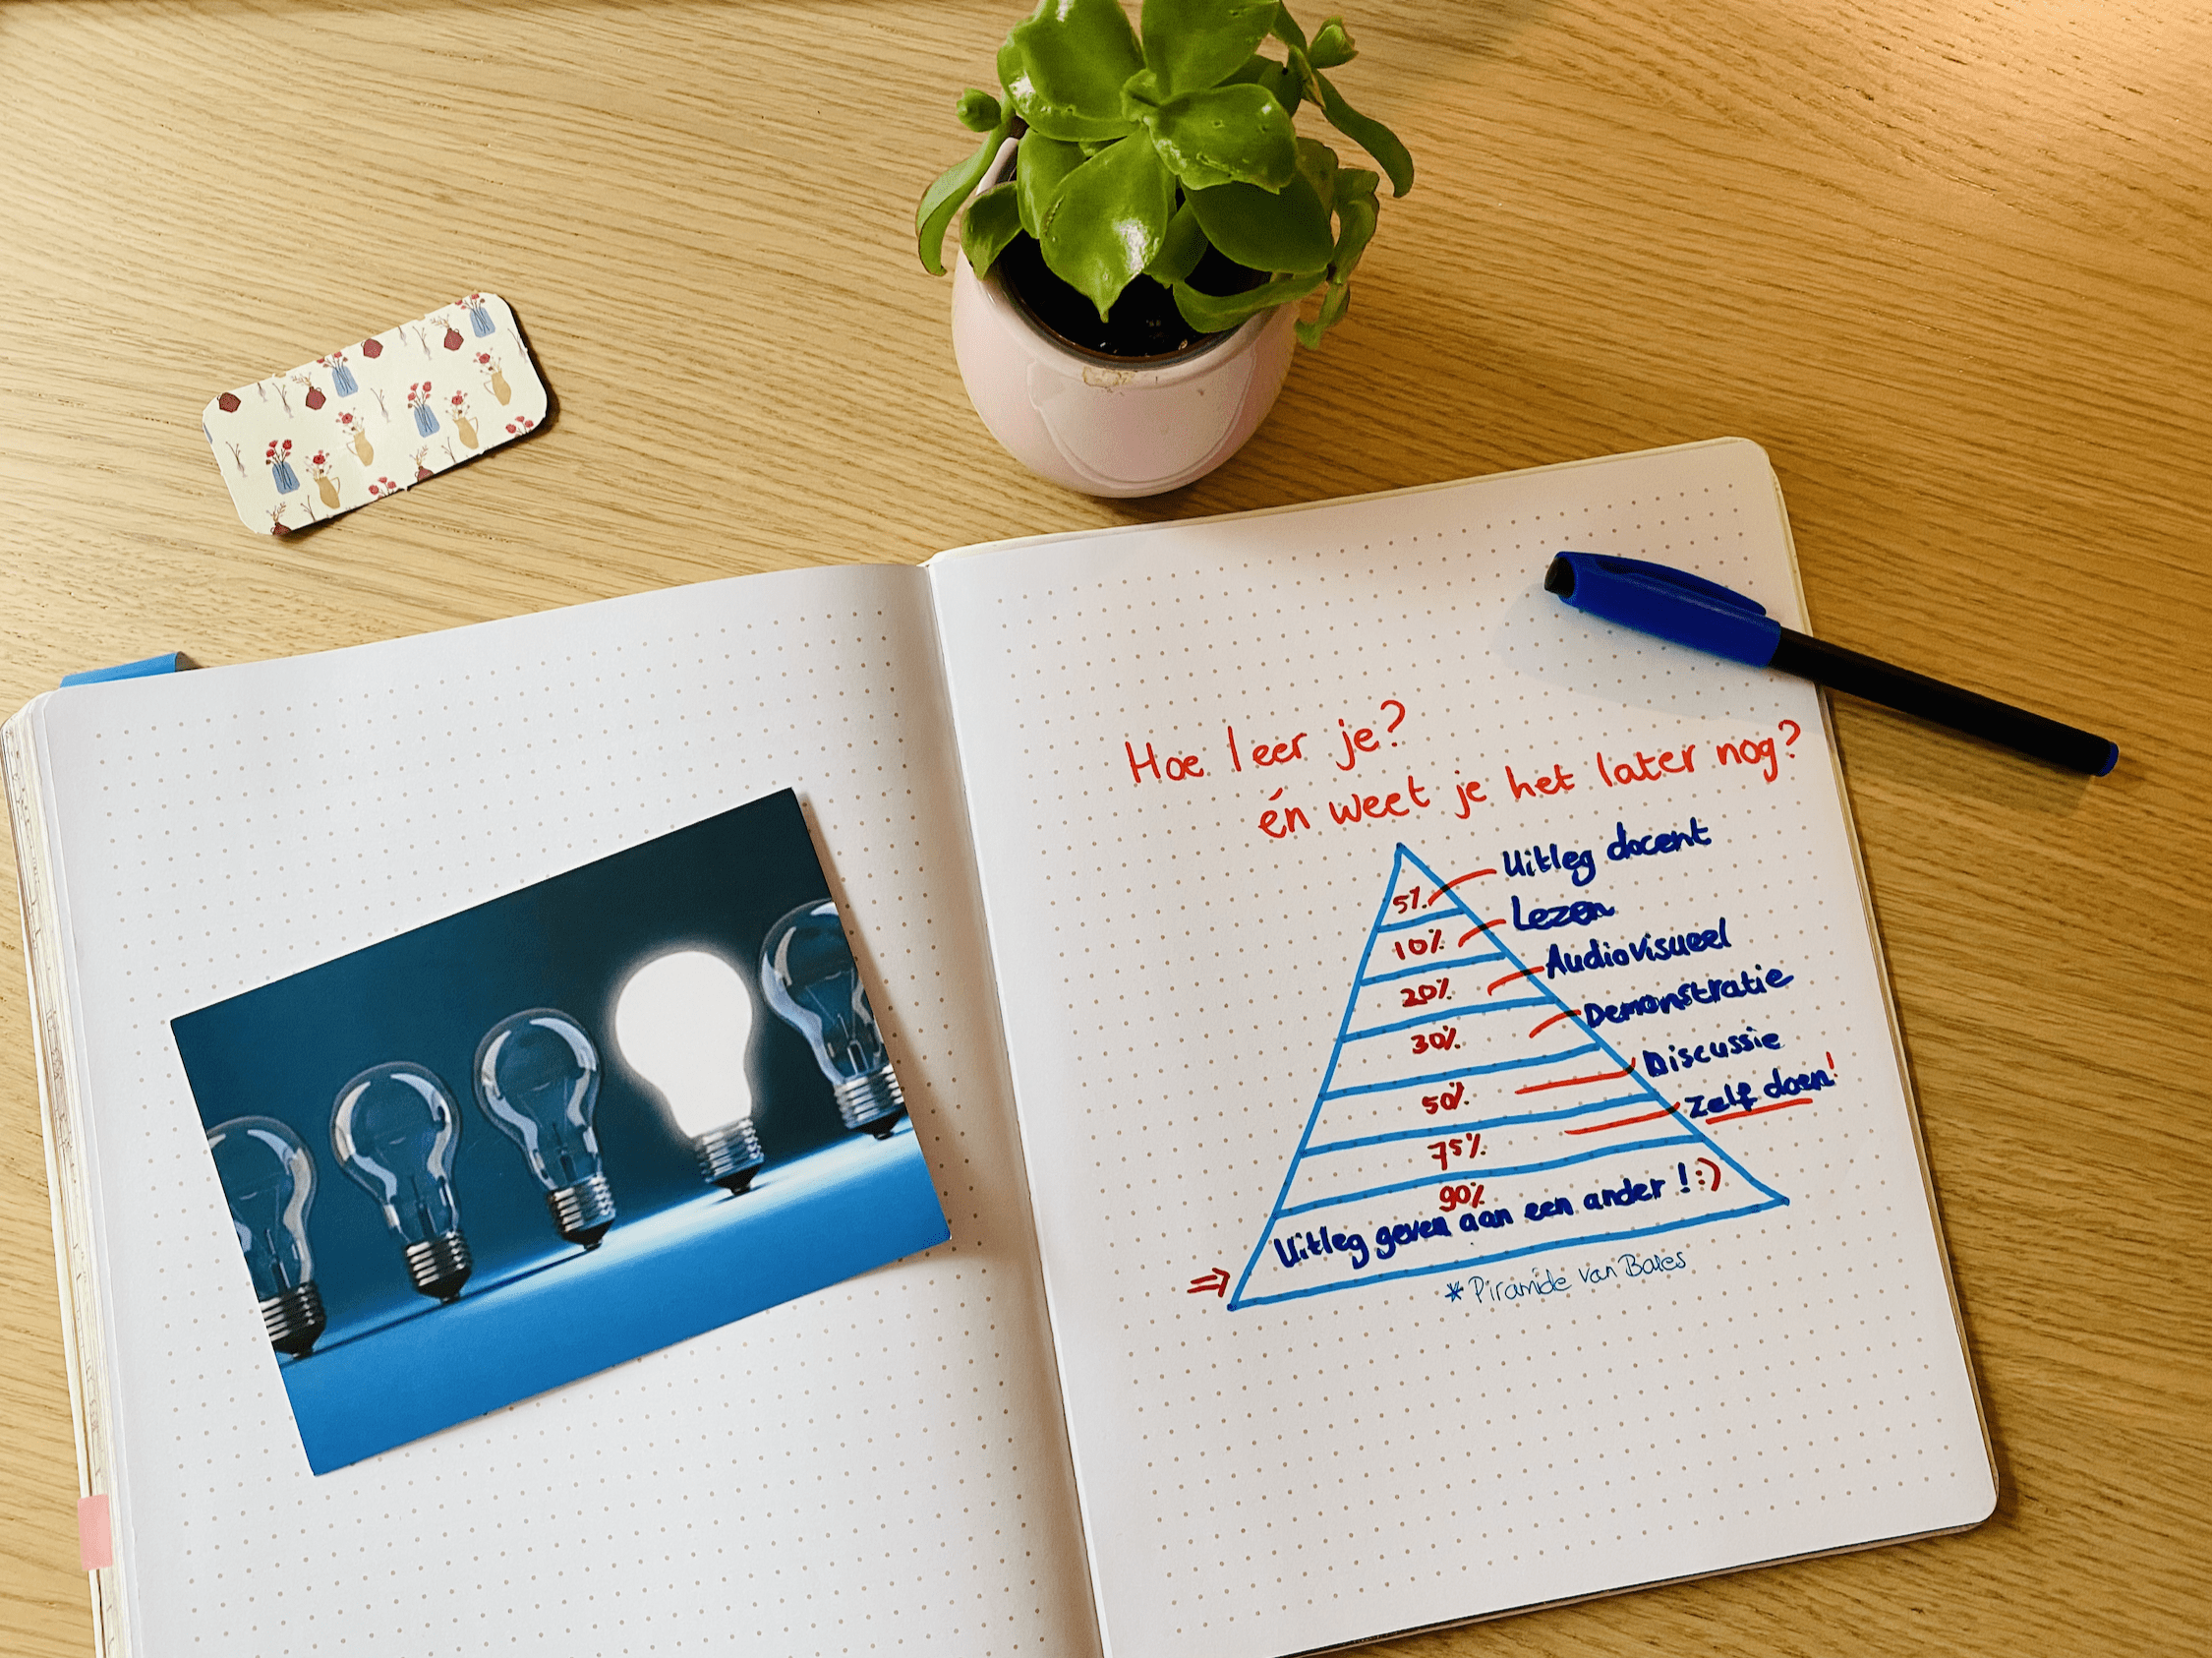 Hoe leer je?
én weet je het later nog?
5% Uitleg docent
10% Lezen
20% Audiovisueel
30% Demonstratie
50% Discussie
75% Zelf doen!
90%
Uitleg geven aan een ander! :)
⇒
* Piramide van Bales